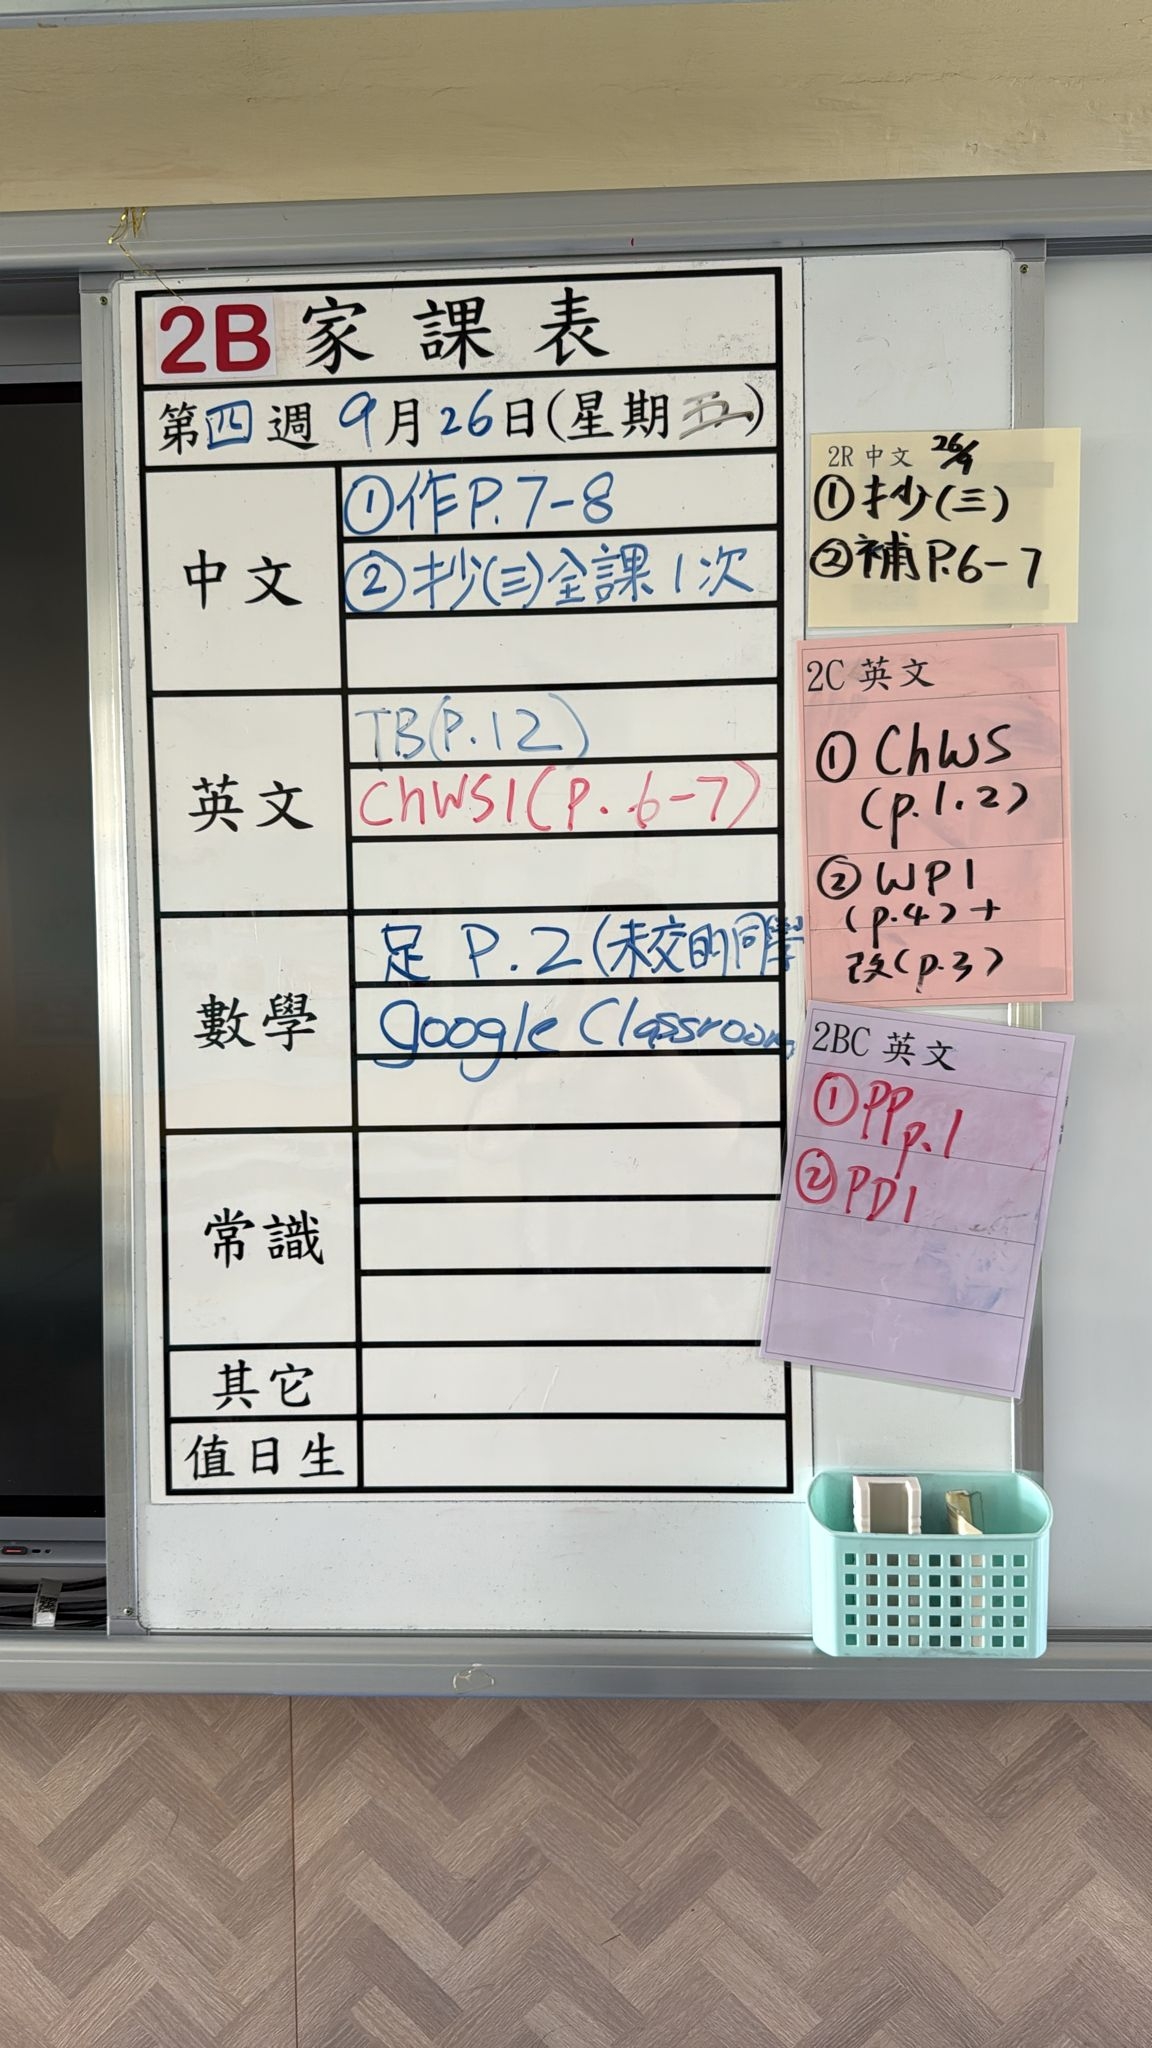 2B 家課表
第四週 9月26日(星期五)
中文
①作P.7-8
②抄(三)全課1次
英文
TB(P.12)
ChWS1(P.6-7)
數學
足 P.2(未交的同學
google Classroom
常識
其它
值日生
2R 中文 26/9
①抄(三)
②補P.6-7
2C 英文
① ChWS
(p.1.2)
② WP1
(p.4)+
改(p.3)
2BC 英文
①PP p.1
②PD1